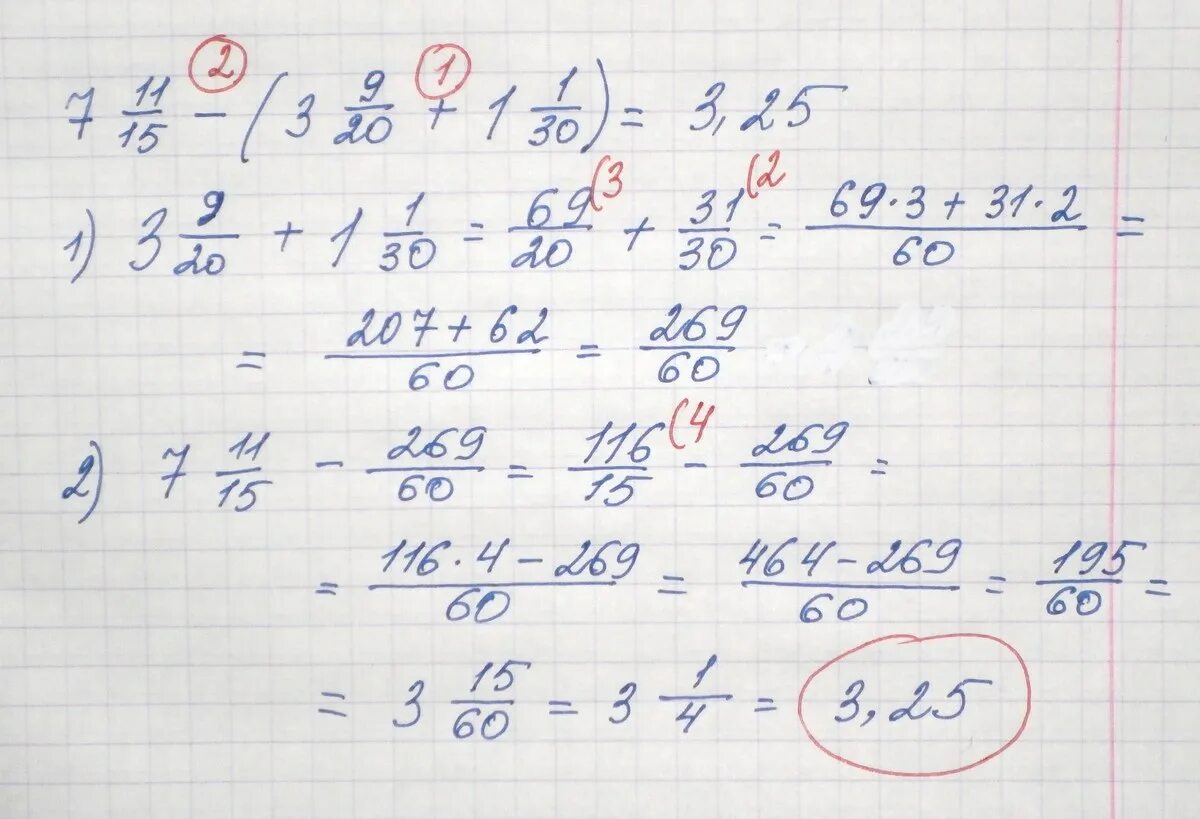 7 11/15 - (3 9/20 + 1 1/30) = 3,25
② ①
1) 3 9/20 + 1 1/30 = 69/20 (3 + 31/30 (2 = (69·3 + 31·2)/60 =
= (207 + 62)/60 = 269/60
2) 7 11/15 - 269/60 = 116/15 (4 - 269/60 =
= (116·4 - 269)/60 = (464 - 269)/60 = 195/60 =
= 3 15/60 = 3 1/4 = 3,25